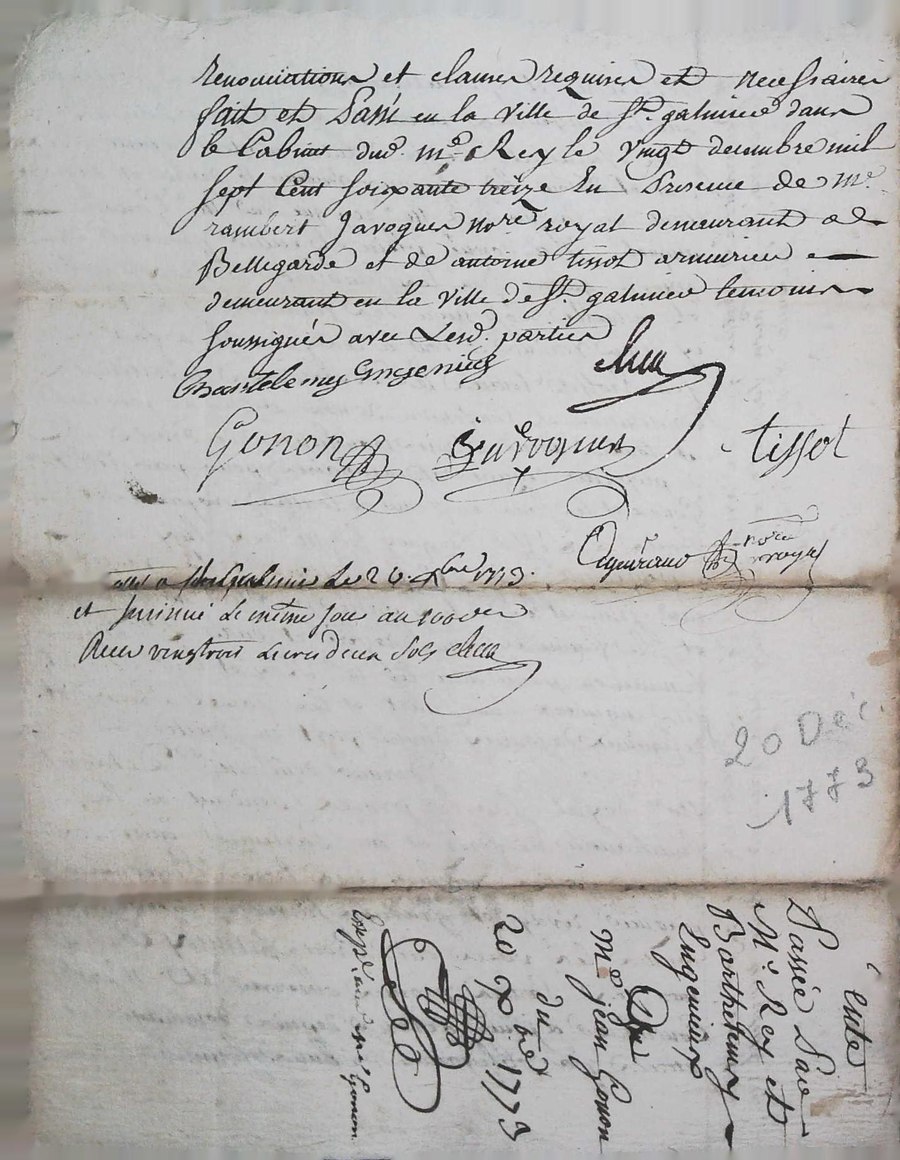 renonciations et clauses requises et necessaires
fait et passé en la ville de St. galmier dans
le Cabinet dud. Me. Rey le vingt decembre mil
sept Cent soixante treize En presence de Me.
rambert Javogues nore royal demeurant a
Bellegarde et de antoine tissot armurier
demeurant en la ville de St. galmier temoins
soussignés avec Lesd. parties
Bartelemy Engenieux
Gonon
tissot
nore royal
a St Galmier Le 24. xbre 1773.
et insinué Le même jour au 100 der
Receu vingtrois Livres deux sols
20 Déc.
1773
Vente
Passée par
Me. Rey et
Barthelemy
Engenieux
Me jean Gonon
du
20 xbre 1773
Expd. Gonon